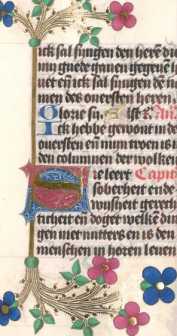 ick sal singen den here di
mi guede ghinen gegeue h
uet eñ ick sal singen dē n
men des ouersten heren
Glorie si
Ick hebbe gewont in de
ouersten eñ mi troen is i
den columnen der wolken
ie leert Capit
soberheit ende
wijsheit gerech
ticheit en doget welke din
gen niet nutters en is den
menschen in horen leuen